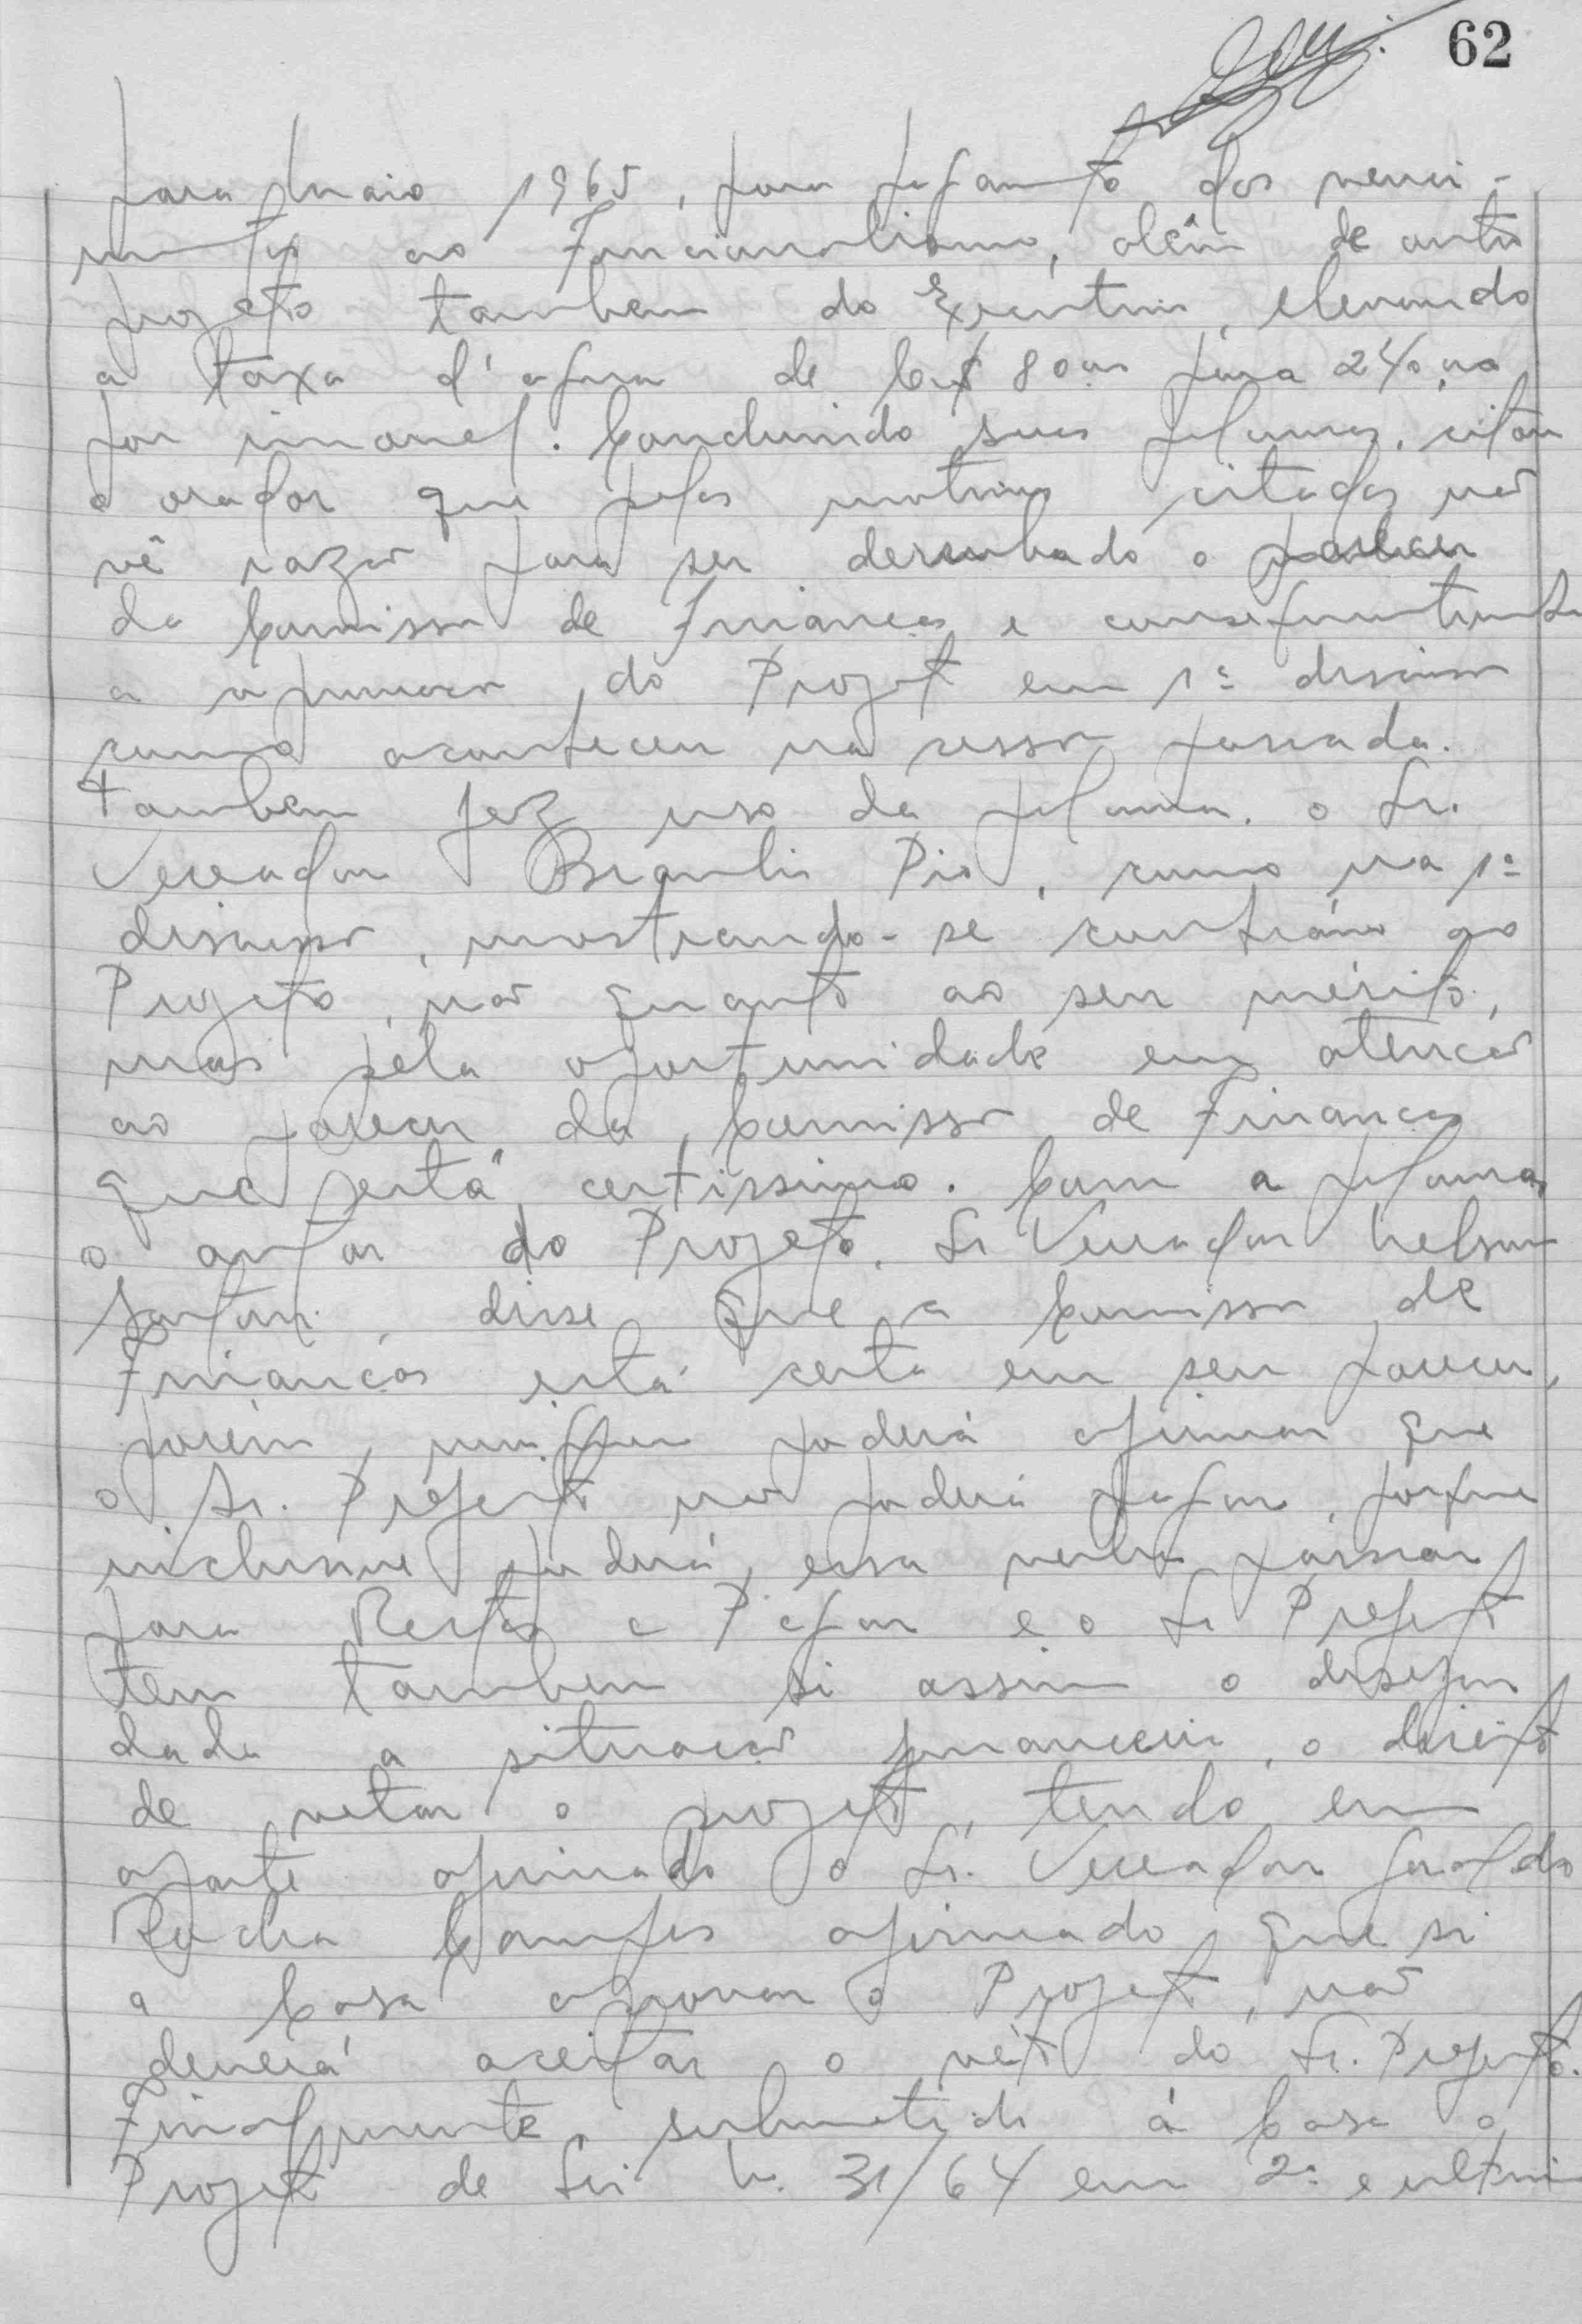 62
para Maio 1965, para pagamento dos venci-
mentos ao Funcionalismo, além de outro
projeto tambem do Executivo, elevando
a taxa d'agua de Cr$ 80,00 para 240,00
por imovel. Concluindo suas palavras, citou
o orador que pelos motivos citados não
vê razão para ser derrubado o parecer
da Comissão de Finanças e consequentemente
a aprovação do Projeto em 1ª discussão
como aconteceu na sessão passada.
Tambem fez uso da palavra, o Sr.
Vereador Braulio Pio, como na 1ª
discussão, mostrando-se contrário ao
Projeto, não quanto ao seu mérito,
mas pela oportunidade em atenção
ao parecer da Comissão de Finanças
que está certissimo. Com a palavra,
o autor do Projeto, Sr Vereador Nelson
disse que a Comissão de
Finanças está certa em seu parecer,
porém, ninguem poderá afirmar que
o Sr. Prefeito não poderá pagar, porque
inclusive poderá, essa verba passar
para Restos a Pagar e o Sr Prefeito
tem tambem si assim o desejar
dada a situação financeira, o direito
de vetar o projeto, tendo em
aparte afirmado o Sr. Vereador Geraldo
Rocha Campos afirmado que si
a Casa aprovar o Projeto, não
deverá aceitar o véto do Sr. Prefeito.
Finalmente submetido á Casa o
Projeto de Lei N. 31/64 em 2ª e ultima